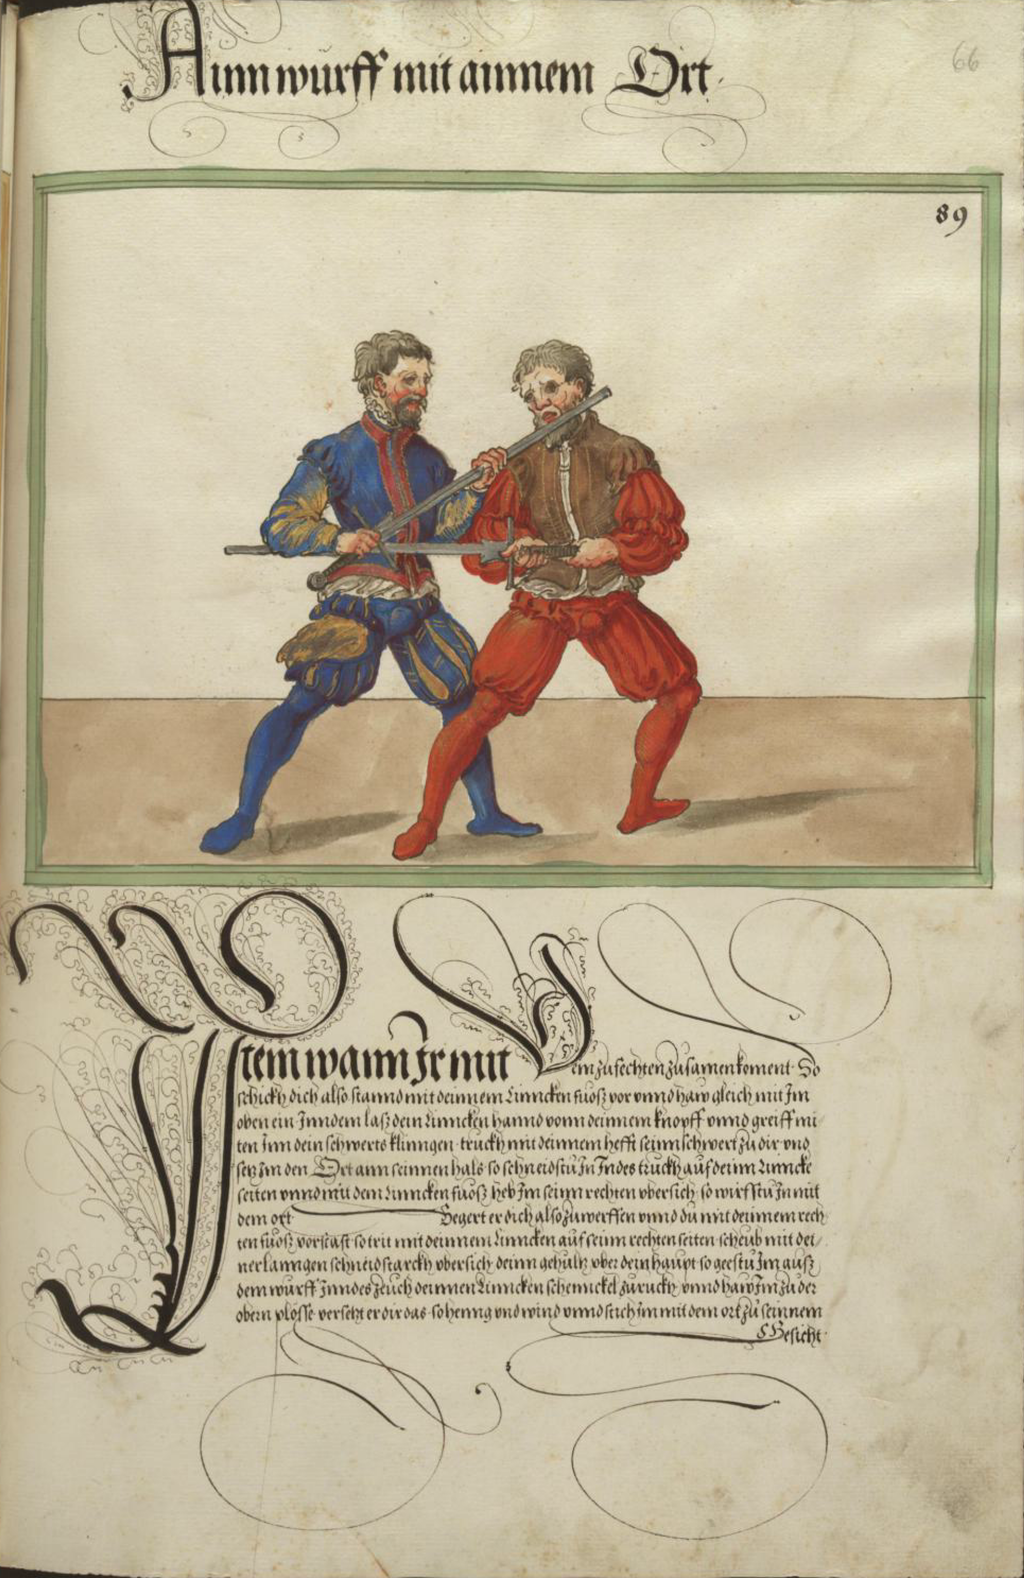 Ainn wurff mit ainnem Ort.
66
89
Item wann Jr mit Dem zufechten zusamen koment. So
schickh dich also stannd mit deinnem Linncken fuosz vor vnnd haw gleich mit Jm
oben ein Jnndem lasz dein Linncken hannd vonn deinnem knopff vnnd greiff mi-
ten Jnn dein schwerts klinngen truckh mit deinnem hefft seinn schwert zu dir vnd
setz Jm den Ort ann seinnen hals so schneidstu Jn Jndes truckh auf deinn Linncke
seiten vnnd mit dem Linncken fuosz heb Jm seinn rechten vbersich so wirfstu Jn mit
dem ort Begert er dich also zuwerffen vnnd du mit deinnem rech-
ten fuosz vorstast so trit mit deinnem Linncken auf seinn rechten seiten scheub mit dei-
ner lanngen schneid starckh vbersich deinn gehultz vber dein haupt so geestu Jm ausz
dem wurff Jnndes zeuch deinnen Linncken schennckel zuruckh vnnd haw Jm zu der
obern plosse versetzt er dir das so henng vnd wind vnnd stich Jm mit dem ort zu seinnem
Gesicht.